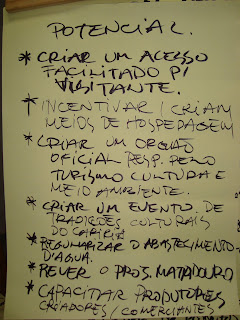 POTENCIAL.
* CRIAR UM ACESSO
FACILITADO P/
VISITANTE.
* INCENTIVAR / CRIAM
MEIOS DE HOSPEDAGEM
* CRIAR UM ORGÃO
OFICIAL RESP. PELO
TURISMO CULTURA E
MEIO AMBIENTE.
* CRIAR UM EVENTO DE
TRADIÇÕES CULTURAIS
DO CARIRI
* REGULARIZAR O ABASTECIMENTO
D'AGUA.
* REVER O PROJ. MATADOURO
* CAPACITAR PRODUTORES
CRIADORES / COMERCIANTES